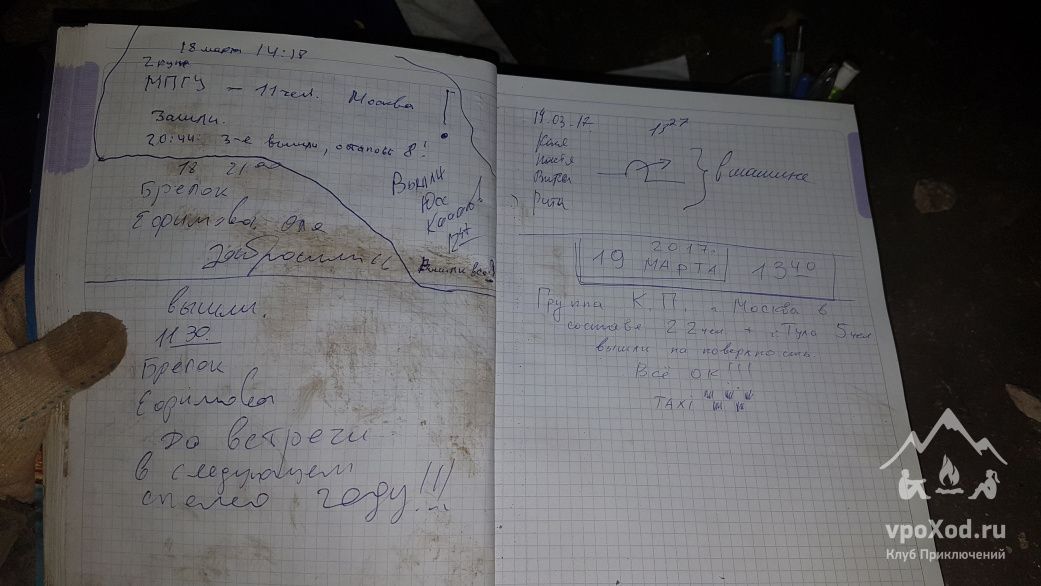 18 марта 14:18
МПГУ - 11 чел. Москва
Зашли.
20:44 3-е вышли, осталось 8!
18 21
Брелок
Ефимова Оля
Забросились
Вышли
12
Вышли все
вышли.
11 30.
Брелок
Ефимова
До встречи
в следующем
спелео году!!!
19.03.17. 15 27
Коля
Настя
Витя
Рита
в машине
2017г.
19 МАРТА 13 40
Группа КП г. Москва в
составе 22 чел + г. Тула 5 чел
вышли на поверхность
Всё ОК!!!
TAXI
vpoXod.ru
Клуб Приключений